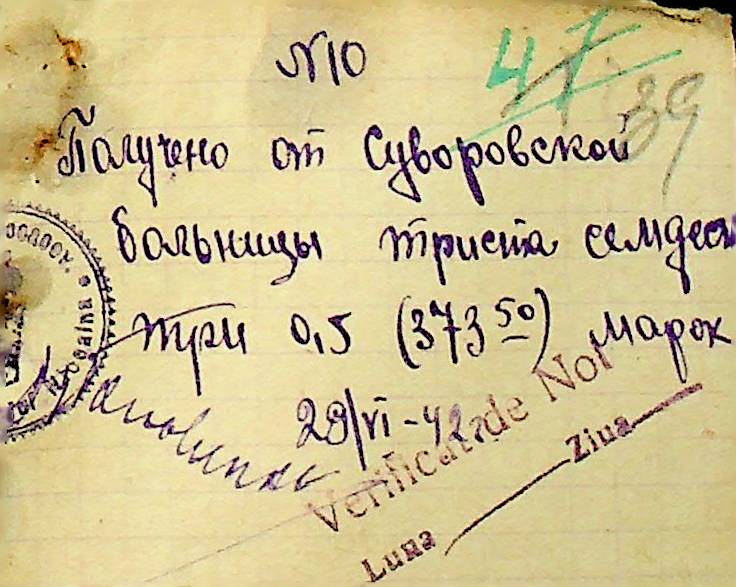 №10
47
39
Получено от Суворовской
больницы триста семдесят
три 0,5 (373 50) марок
29/VI-42г
Verificat de Noi
Luna Ziua